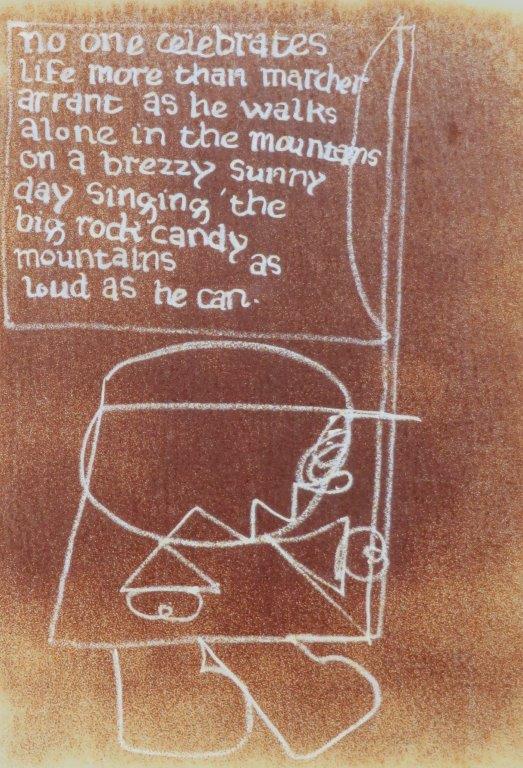 no one celebrates
life more than marcher
arrant as he walks
alone in the mountains
on a brezzy sunny
day singing 'the
big rock candy
mountains as
loud as he can.